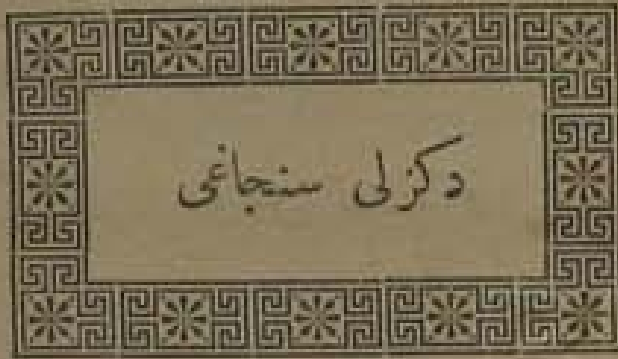 دكزلی سنجاغی